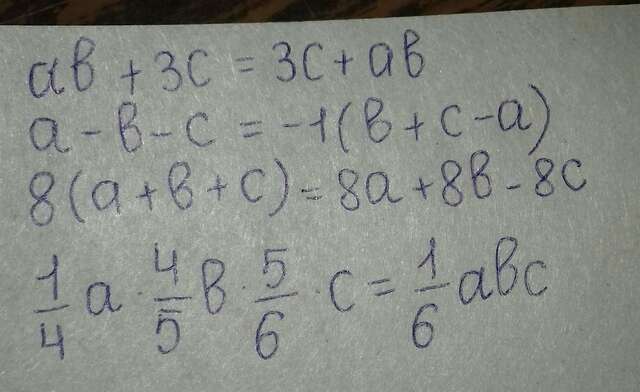 ab + 3c = 3c + ab
a - b - c = -1(b + c - a)
8(a + b + c) = 8a + 8b - 8c
1/4 a · 4/5 b · 5/6 · c = 1/6 abc